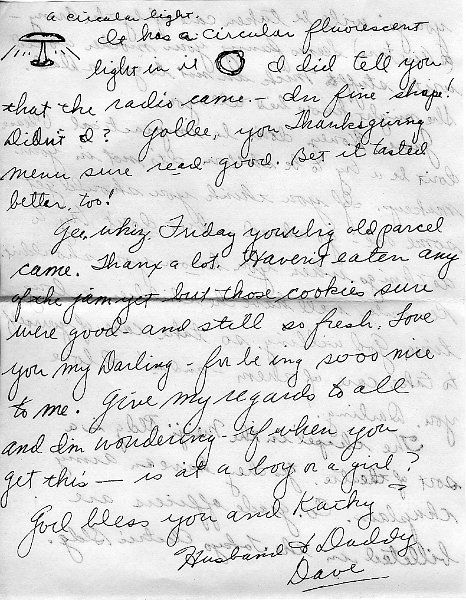 a circular light.
It has a circular fluorescent
light in it I did tell you
that the radio came. - In fine shape!
Didn't I? Gollee, you Thanksgiving
menu sure read good. Bet it tasted
better, too!
Gee whiz, Friday your big old parcel
came. Thanx a lot. Haven't eaten any
of the jam yet but those cookies sure
were good - and still so fresh. Love
you my Darling - for being sooo nice
to me. Give my regards to all
and I'm wondering - if when you
get this — is at a boy or a girl?
God bless you and Kathy
Husband & Daddy
Dave